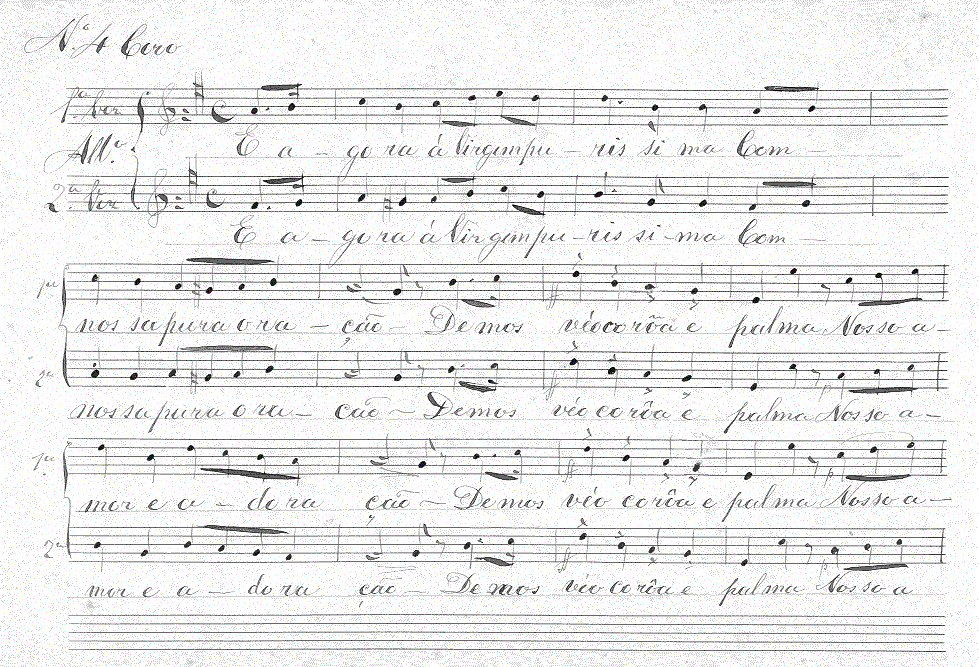 Nº 4 Coro
1ª Ver
E a - gora á Virgem pu - ris si ma Com -
Allº
2ª Ver
E a - gora á Virgem pu - ris si - ma Com -
1ª
nos sa pura o ra - ção - De mos véo corôa e palma Nosso a -
2ª
nos sa pura o ra - ção - Demos véo corôa e palma Nosso a -
1ª
mor e a - do ra ção - Demos véo corôa e palma Nosso a -
2ª
mor e a - do ra ção - Demos véo corôa e palma Nosso a